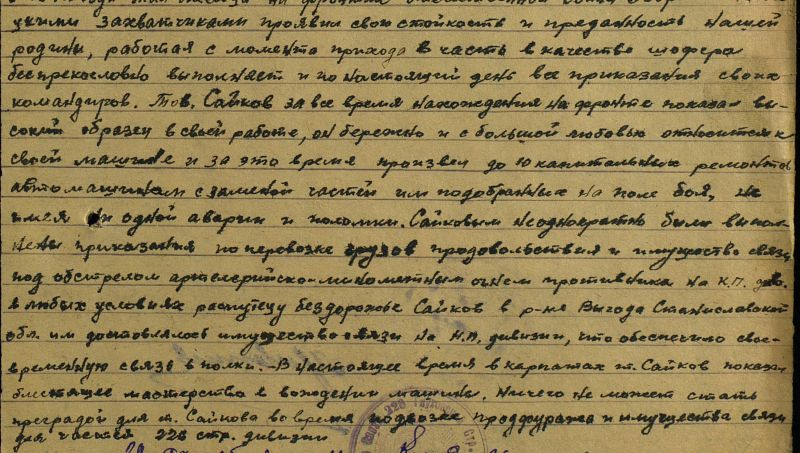 захватчиками проявил свою стойкость и преданность нашей
родины, работая с момента прихода в часть в качестве шофера
беспрекословно выполняет и по настоящий день все приказания своих
командиров. Тов. Сайков за все время нахождения на фронте показал вы-
сокий образец в своей работе, он бережно и с большой любовью относится к
своей машине и за это время произвел до 10 капитальных ремонтов
автомашинам с заменой частей им подобранных на поле боя, не
имея ни одной аварии и поломки. Сайковым неоднократно были выпол-
нены приказания по перевозке грузов продовольствия и имущества связи
под обстрелом артелерийско-минометным огнем противника на К.П. див.
в любых условиях распутецу бездорожье Сайков в р-не Выгода Станиславской
обл. им доставлялось имущество связи на Н.П. дивизии, что обеспечило свое-
временную связь в полки. В настоящее время в карпатах т. Сайков показал
блестящее мастерство в вождении машины. Ничего не может стать
преградой для т. Сайкова во время подвозке продфуража и имущества связи
для частей 226 стр. дивизии